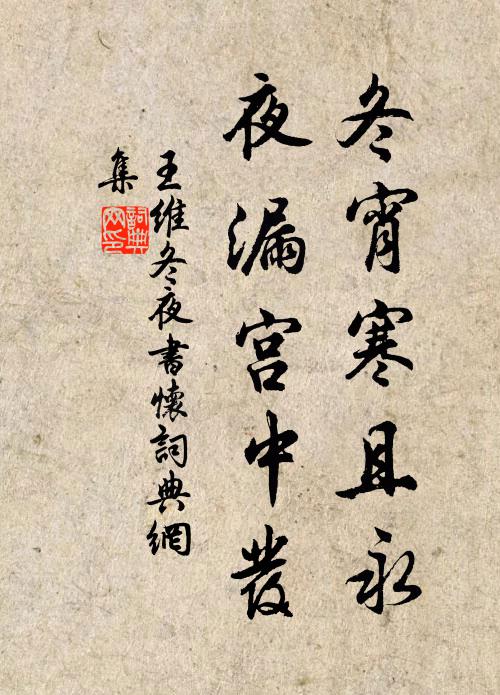 冬宵寒且永
夜漏宫中發
王維冬夜書懷詞典網
集
詞典
网印